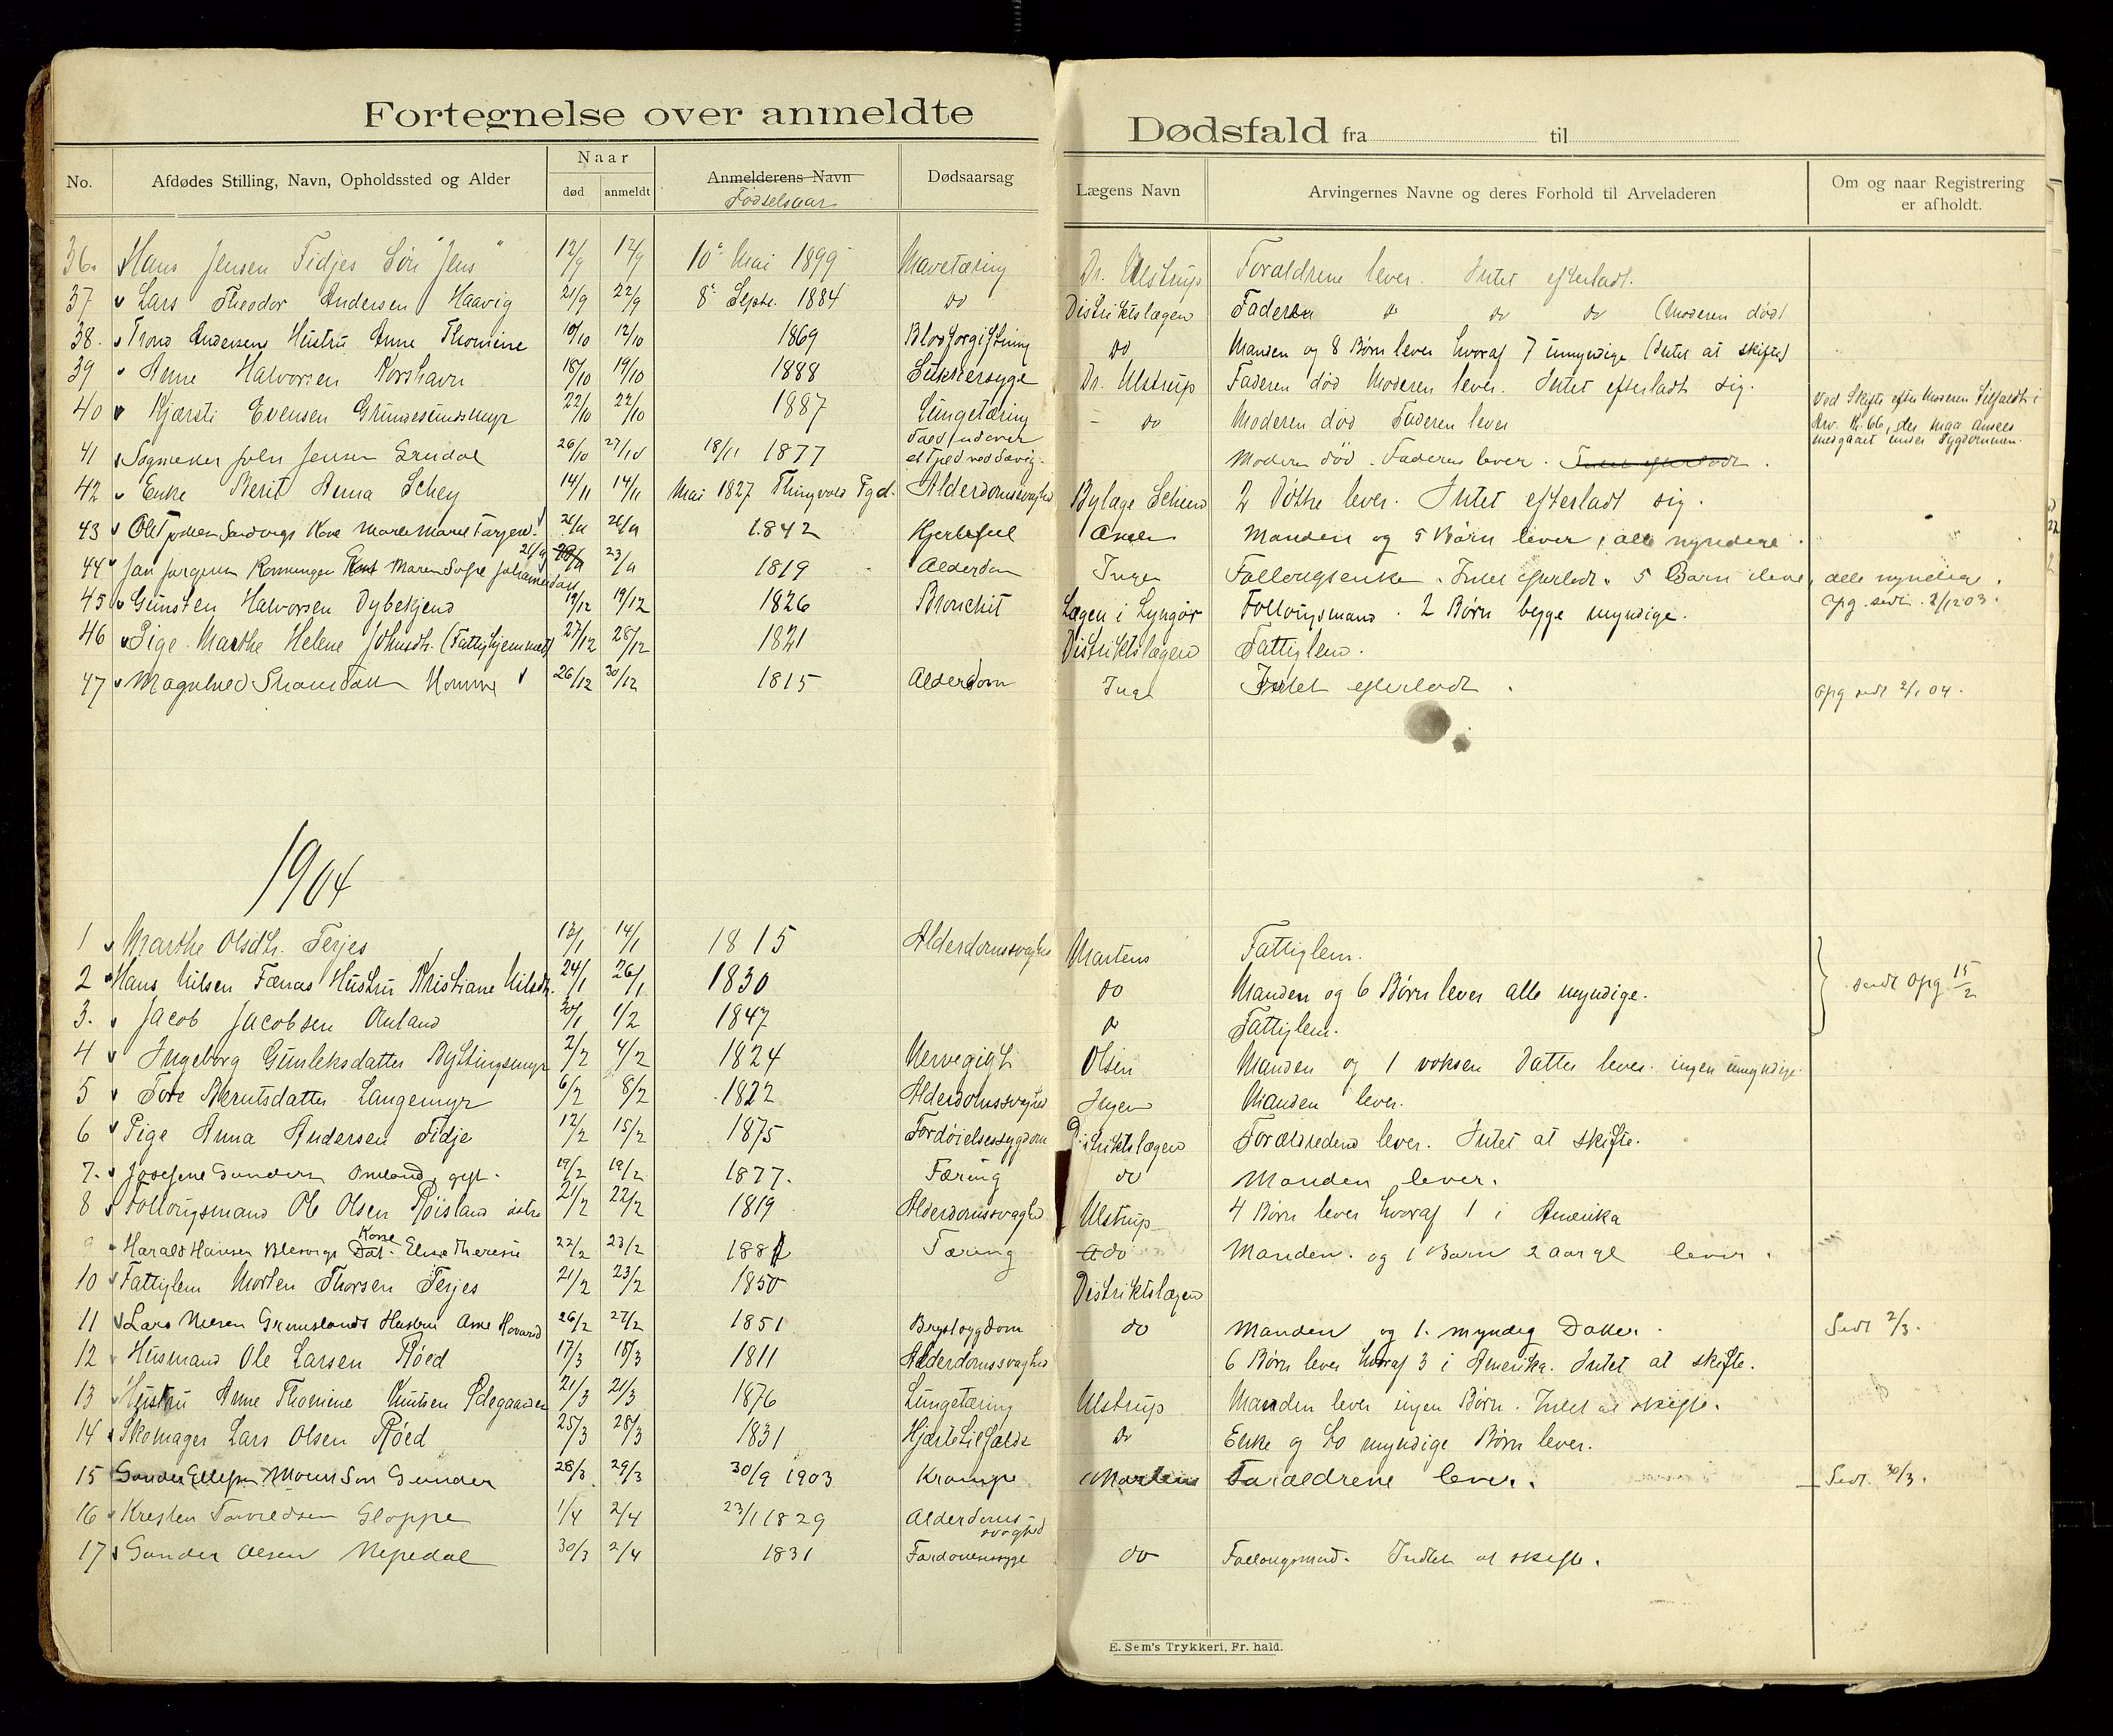 Fortegnelse over anmeldte Dødsfald fra til
No. Afdødes Stilling, Navn, Opholdssted og Alder Naar død anmeldt Anmelderens Navn Fødselsaar Dødsaarsag Lægens Navn Arvingernes Navne og deres Forhold til Arveladeren Om og naar Registrering er afholdt.
36. Hans Jensen Tidjes Søn "Jens" 12/9 12/9 10de Mai 1899 Mavetæring Dr. Ulstrup Forældrene lever. Intet efterladt.
37 Lars Theodor Andersen Haavig 21/9 22/9 8de Septr. 1884 do Distriktslægen Faderen do do do (Moderen død)
38. Trond Andersens Hustru Anne Thomine 10/10 12/10 1869 Blodforgiftning do Manden og 8 Børn lever hvoraf 7 umyndige (Intet at skifte)
39 Anne Halvorsen Korshavn 18/10 19/10 1888 Sukkersyge Dr. Ulstrup Faderen død Moderen lever. Intet efterladt sig.
40 Kjærsti Evensen Grundesundsmyr 22/10 22/10 1887 Lungetæring do Moderen død Faderen lever Ved Skifte efter Moderen tilfaldt i Arv. Kr. 66, der maa ansees medgaaet under Sygdommen.
41 Jens Jensen 26/10 27/10 18/11 1877 Fald udover Moderen død. Faderen lever. Intet efterladt.
42 Enke Berit Anna Schey 14/11 14/11 Mai 1827 Thingvold Pgd. Alderdomssvaghed Bylæge 2 Døtre lever. Intet efterladt sig.
43 26/11 26/11 1842 Hjertefeil Manden og 5 Børn lever, alle myndige.
44 Jan Jørgensen Maren Sofie Johannesdatt 21/11 23/11 1819 Alderdom Ingen Follougsenke. Intet efterladt. 5 Børn lever, alle myndige.
45 Gunsten Halvorsen Dybekjend 19/12 19/12 1826 Bronchit Lægen i Lyngør Follougsmand. 2 Børn begge myndige. Opg. sendt 2/12 03.
46 Pige Marthe Helene Johnsdtr. (Fattighjemmet) 27/12 28/12 1821 Distriktslægen Fattiglem.
47 Magnhild 26/12 30/12 1815 Alderdom Ingen Intet efterladt. Opg sendt 2/1 04.
1904
1 Marthe Olsdtr. Terjes 13/1 14/1 1815 Alderdomssvaghed Martens Fattiglem.
2 Hans Nilsen Fænas Hustru Kristiane Nilsdtr. 24/1 26/1 1830 do Manden og 6 Børn lever alle myndige. sendt Opg 15/2
3. Jacob Jacobsen Auland 30/1 1/2 1847 do Fattiglem.
4 Ingeborg Gunleksdatter Byttingsmyr 2/2 4/2 1824 Nervegigt Olsen Manden og 1 voksen Datter lever. ingen umyndige.
5 Tore Berutsdatter Langemyr 6/2 8/2 1822 Alderdomssvaghed Ingen Manden lever.
6 Pige Anna Andersen Tidje 12/2 15/2 1875 Fordøielsessygdom Distriktslægen Forældrene lever. Intet at skifte.
7. Josefine Gundersen Omland, gift. 19/2 19/2 1877. Tæring do Manden lever.
8 Follougsmand Ole Olsen Røisland østre 21/2 22/2 1819 Alderdomssvaghed Ulstrup 4 Børn lever hvoraf 1 i Amerika
9 Harald Hansen Blesvigs Dat. Kone Elise Therese 22/2 23/2 1881 Tæring do Manden og 1 Barn 2 aar gl lever.
10 Fattiglem Morten Thorsen Terjes 21/2 23/2 1850 Distriktslægen
11 Lars Nilsen Grimslands Hustru Anne Havard 26/2 27/2 1851 Brystsygdom do Manden og 1. myndig Datter. Sedt 2/3.
12 Husmand Ole Larsen Røed 17/3 18/3 1811 Alderdomssvaghed 6 Børn lever hvoraf 3 i Amerika. Intet at skifte.
13 Hustru Anne Thomine Knutsen Ødegaarden 21/3 21/3 1876 Lungetæring Ulstrup Manden lever ingen Børn. Intet at skifte.
14 Skomager Lars Olsen Røed 25/3 28/3 1831 Hjertetilfælde do Enke og to myndige Børn lever.
15 Gunder Ellefsen Moens Søn Gunder 28/3 29/3 30/9 1903 Krampe Martens Forældrene lever. Sedt. 30/3.
16 Kresten Torvildsen Gloppe 1/4 2/4 23/1 1829 Alderdomssvaghed
17 Gunder Olsen Nepedal 30/3 2/4 1831 do Follougsmd. Indtet at skifte.
E. Sem's Trykkeri, Fr. hald.